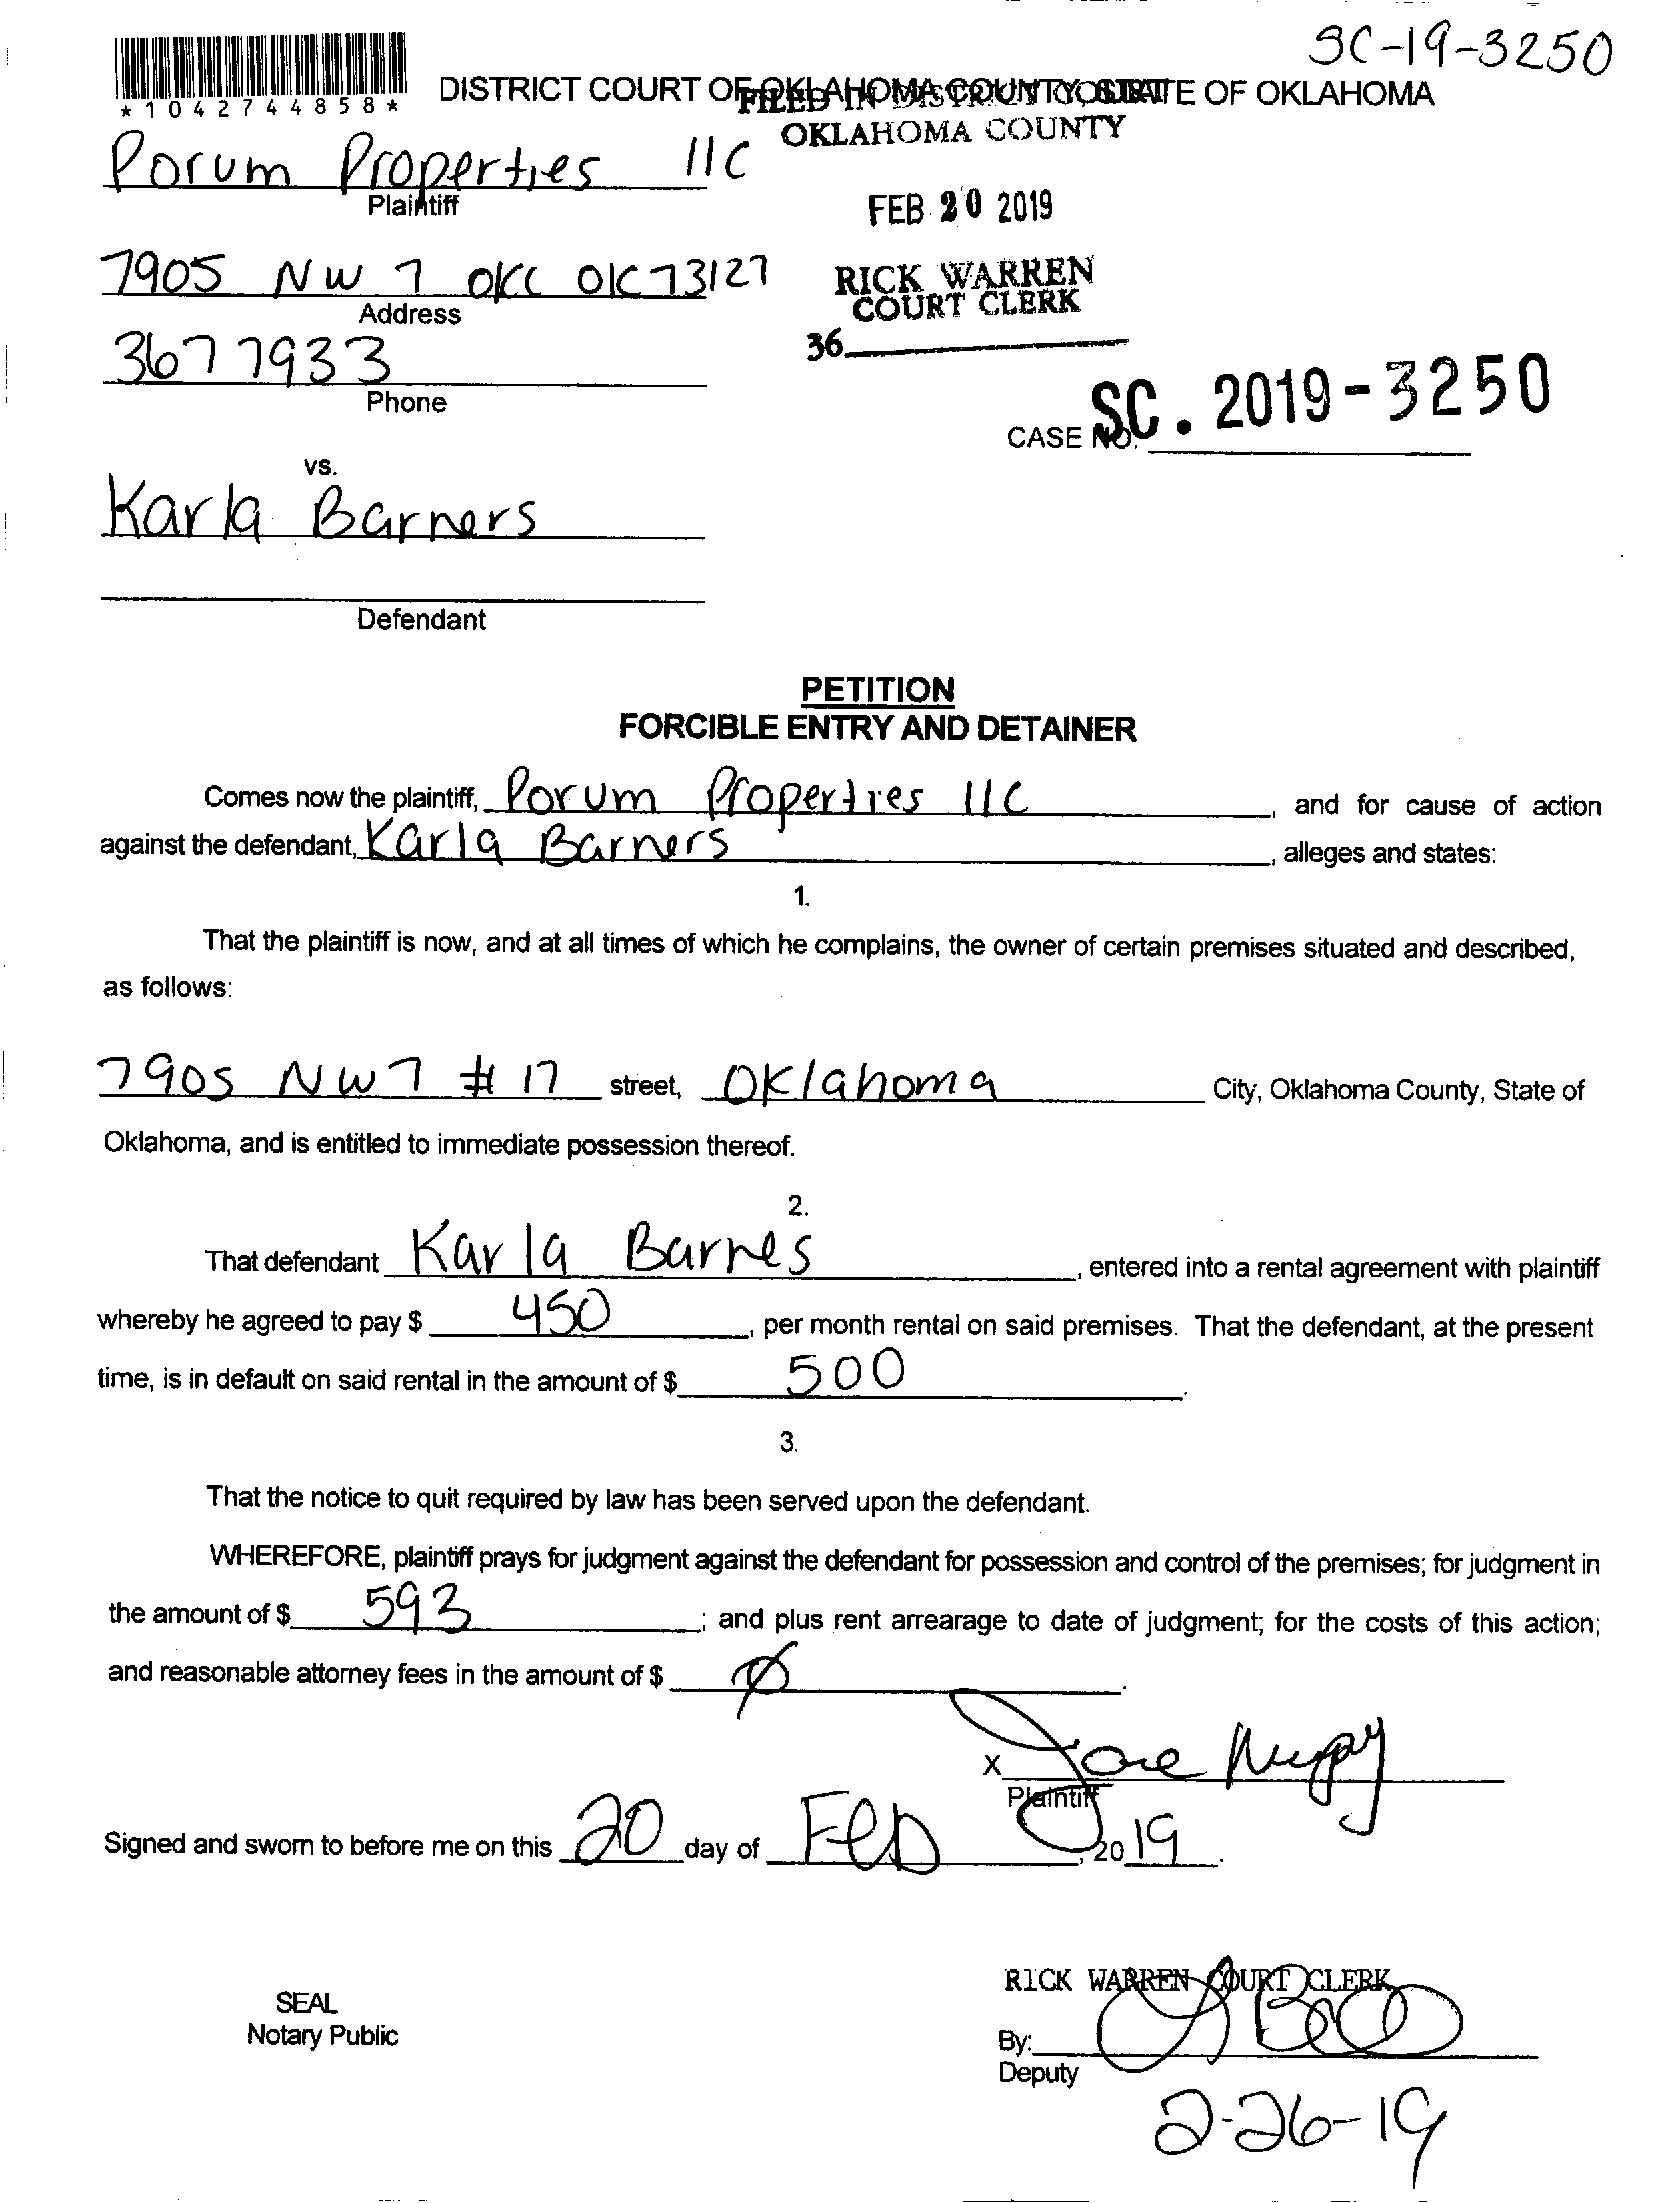 SC-19-3250
*1042744858*
DISTRICT COURT OF OKLAHOMA COUNTY, STATE OF OKLAHOMA
FILED IN DISTRICT COURT
OKLAHOMA COUNTY
Porum Properties llC
Plaintiff
FEB 20 2019
7905 NW 7 OKC OK 73127
Address
RICK WARREN
COURT CLERK
36
367 7933
Phone
CASE NO. SC. 2019-3250
vs.
Karla Barners
Defendant
PETITION
FORCIBLE ENTRY AND DETAINER
Comes now the plaintiff, Porum Properties llC, and for cause of action
against the defendant, Karla Barners, alleges and states:
1.
That the plaintiff is now, and at all times of which he complains, the owner of certain premises situated and described,
as follows:
7905 NW 7 # 17 street, Oklahoma City, Oklahoma County, State of
Oklahoma, and is entitled to immediate possession thereof.
2.
That defendant Karla Barnes, entered into a rental agreement with plaintiff
whereby he agreed to pay $ 450, per month rental on said premises. That the defendant, at the present
time, is in default on said rental in the amount of $ 500.
3.
That the notice to quit required by law has been served upon the defendant.
WHEREFORE, plaintiff prays for judgment against the defendant for possession and control of the premises; for judgment in
the amount of $ 593; and plus rent arrearage to date of judgment; for the costs of this action;
and reasonable attorney fees in the amount of $ Ø.
X
Plaintiff
Signed and sworn to before me on this 20 day of Feb, 2019.
RICK WARREN COURT CLERK
SEAL
Notary Public
By:
Deputy
2-26-19